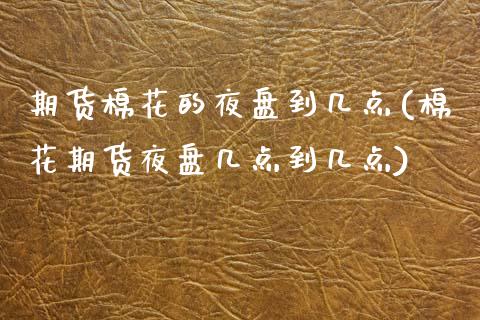 期货棉花的夜盘到几点(棉
花期货夜盘几点到几点)